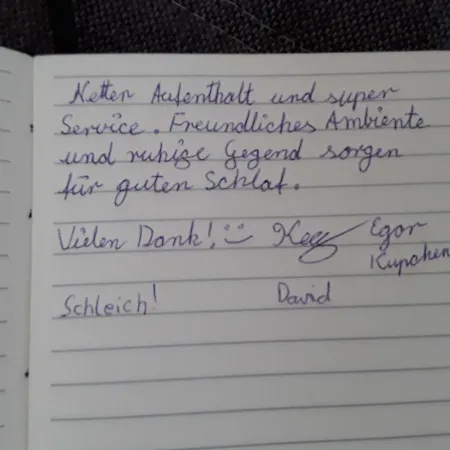 Netter Aufenthalt und super
Service. Freundliches Ambiente
und ruhige Gegend sorgen
für guten Schlaf.
Vielen Dank! :-) Egor
Kupchen
Schleich! David